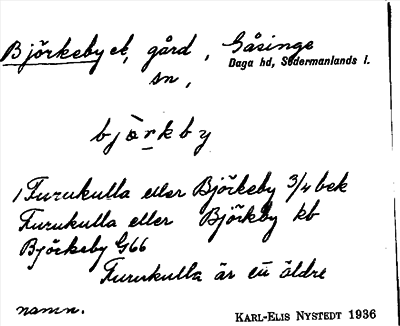 Björkeby et, gård, Gåsinge
Daga hd, Södermanlands l.
sn,
björkby
1 Furukulla eller Björkeby 3/4 bek
Furukulla eller Björkby kb
Björkeby G66
Furukulla är ett äldre
namn.
KARL-ELIS NYSTEDT 1936